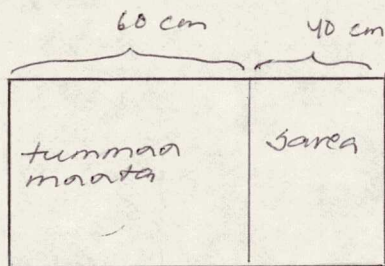 60 cm
40 cm
tummaa
maata
savea